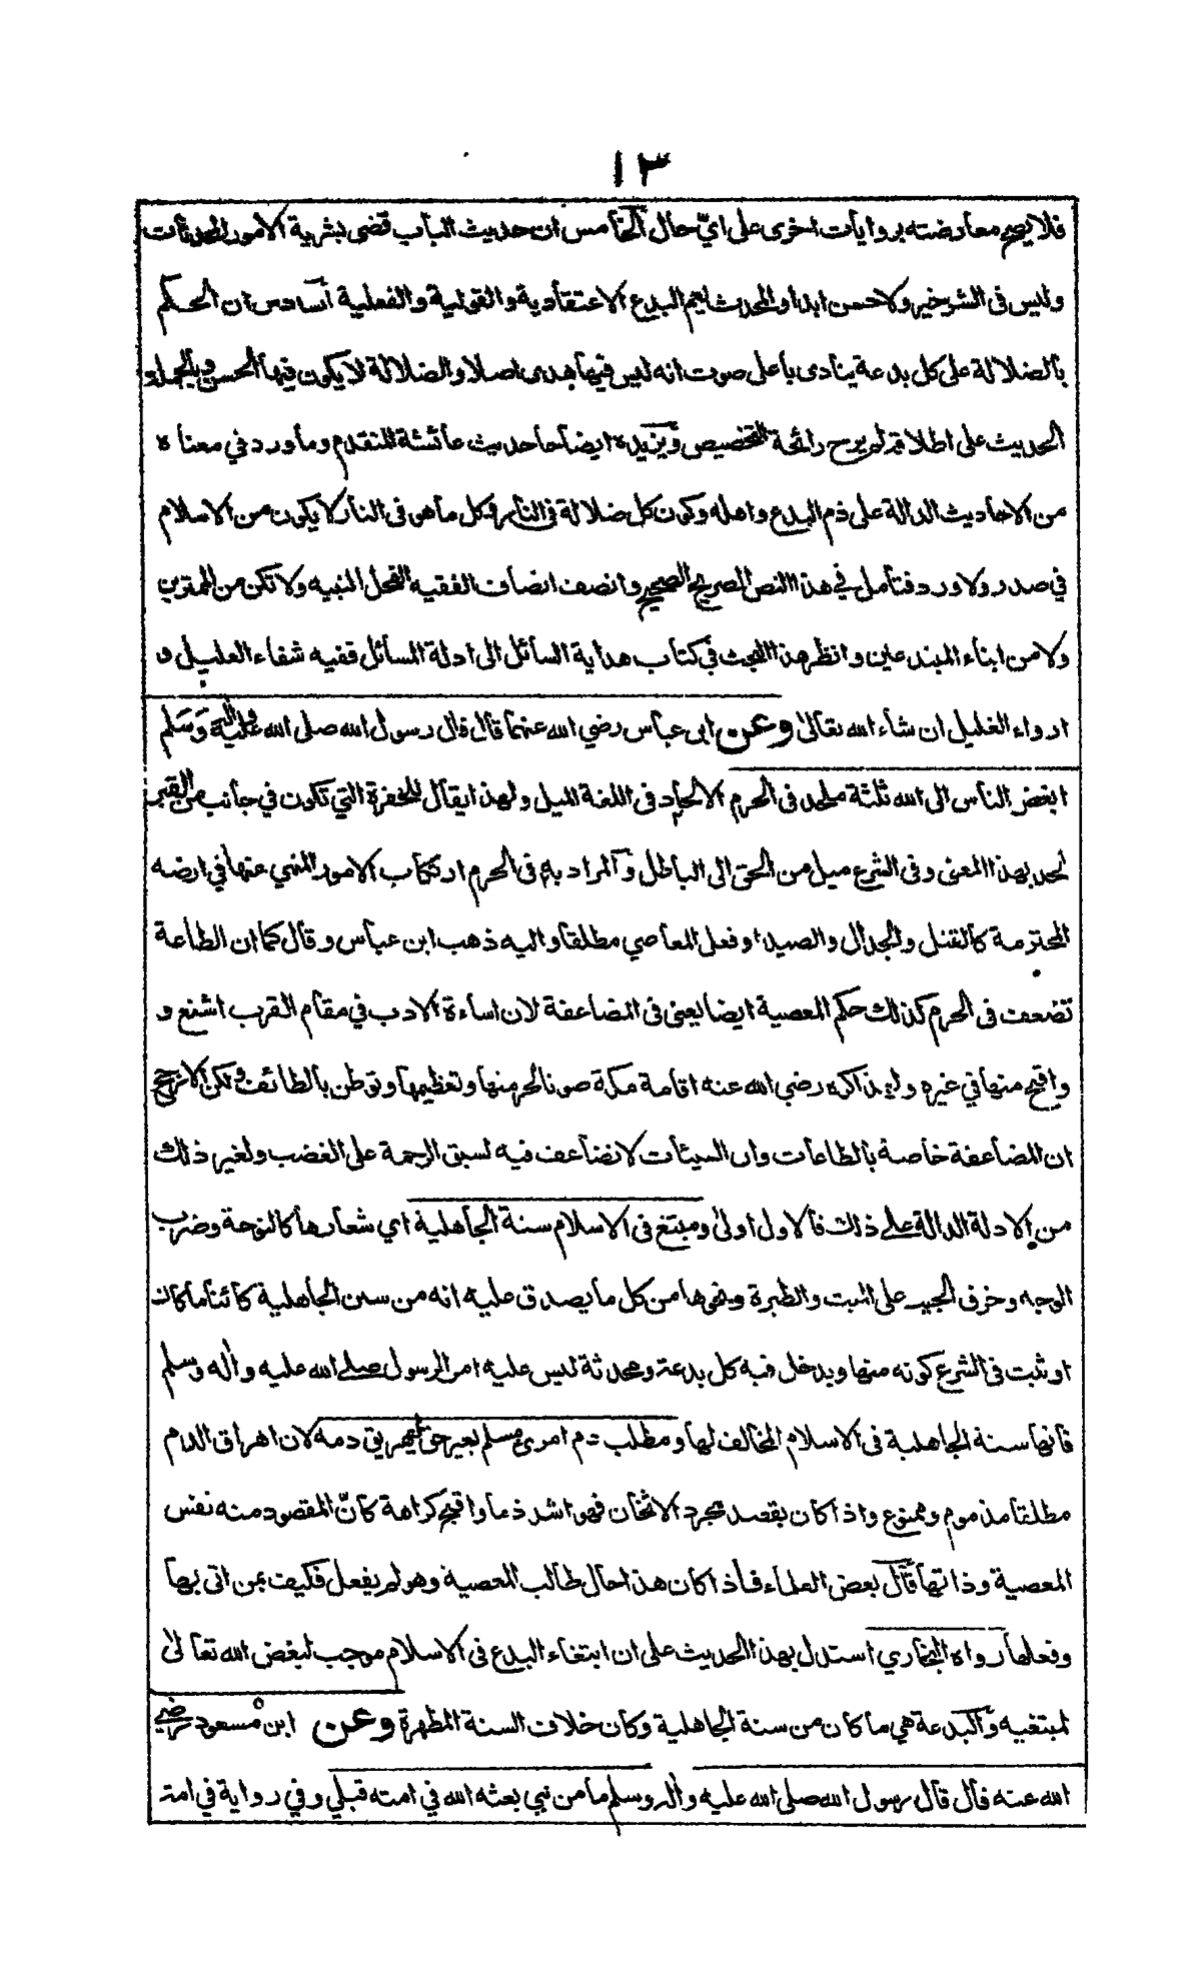 ١٣
فلا يصح معارضته بروايات اخرى على ايّ حال الخامس ان حديث الباب قضى بشرية الامور المحدثات
وليس فى الشر خير ولا حسن ابدا والمحدث يعم البدع الاعتقادية والقولية والفعلية السادس ان الحكم
بالضلالة على كل بدعة ينادى باعلى صوت انه ليس فيها هدى اصلا والضلالة لا يكون فيها الحسن وبالجملة
الحديث على اطلاقه لم يرح رائحة التخصيص ويزيده ايضاحا حديث عائشة المتقدم وما ورد في معناه
من الاحاديث الدالة على ذم البدع واهله وكون كل ضلالة فى النار وكل ما هو فى النار لا يكون من الاسلام
في صدر ولا ورد فتأمل في هذا النص الصريح الصحيح وانصف انصاف الفقيه الفحل النبيه ولا تكن من الممترين
ولا من ابناء المبتدعين وانظر هذا المبحث في كتاب هداية السائل الى ادلة المسائل ففيه شفاء العليل و
ارواء الغليل ان شاء الله تعالى وعن ابى عباس رضي الله عنهما قال قال رسول الله صلى الله عليه وآله وَسَلم
ابغض الناس الى الله ثلثة ملحد فى الحرم الالحاد فى اللغة الميل ولهذا يقال للحفرة التي تكون في جانب من القبر
لحد بهذا المعنى وفى الشرع ميل من الحق الى الباطل والمراد به فى الحرم ارتكاب الامور المنهي عنها في ارضه
المحترمة كالقتل والجدال والصيد او فعل المعاصي مطلقا واليه ذهب ابن عباس وقال كما ان الطاعة
تضعف فى الحرم كذلك حكم المعصية ايضا يعنى فى المضاعفة لان اساءة الادب في مقام القرب اشنع و
واقبح منها في غيره ولهذا كره رضي الله عنه اقامة مكة صونا لحرمتها وتعظيمها وتوطن بالطائف ولكن الارجح
ان المضاعفة خاصة بالطاعات وان السيئات لا تضاعف فيه لسبق الرحمة على الغضب ولغير ذلك
من الادلة الدالة على ذلك فالاول اولى ومبتغ فى الاسلام سنة الجاهلية اي شعارها كالنوحة وضرب
الوجه وخرق الجيب على الميت والطيرة ونحوها من كل ما يصدق عليه انه من سنن الجاهلية كائنا ما كان
او ثبت فى الشرع كونه منها ويدخل فيه كل بدعة ومحدثة ليس عليه امر الرسول صلى الله عليه واله وسلم
فانها سنة الجاهلية فى الاسلام المخالف لها ومطلب دم امرئ مسلم بغير حق ليهريق دمه لان اهراق الدم
مطلقا مذموم وممنوع واذا كان بقصد مجرد الاثخان فهو اشد ذما واقبح كراهة كأنّ المقصود منه نفس
المعصية وذاتها قال بعض العلماء فاذا كان هذا حال طالب المعصية وهو لم يفعل فكيف بمن اتى بها
وفعلها رواه البخاري استدل بهذا الحديث على ان ابتغاء البدع فى الاسلام موجب لبغض الله تعالى
لمبتغيه والبدعة هي ما كان من سنة الجاهلية وكان خلاف السنة المطهرة وعن ابن مسعود رضي
الله عنه قال قال رسول الله صلى الله عليه واله وسلم ما من نبي بعثه الله في امته قبلي وفي رواية في امة